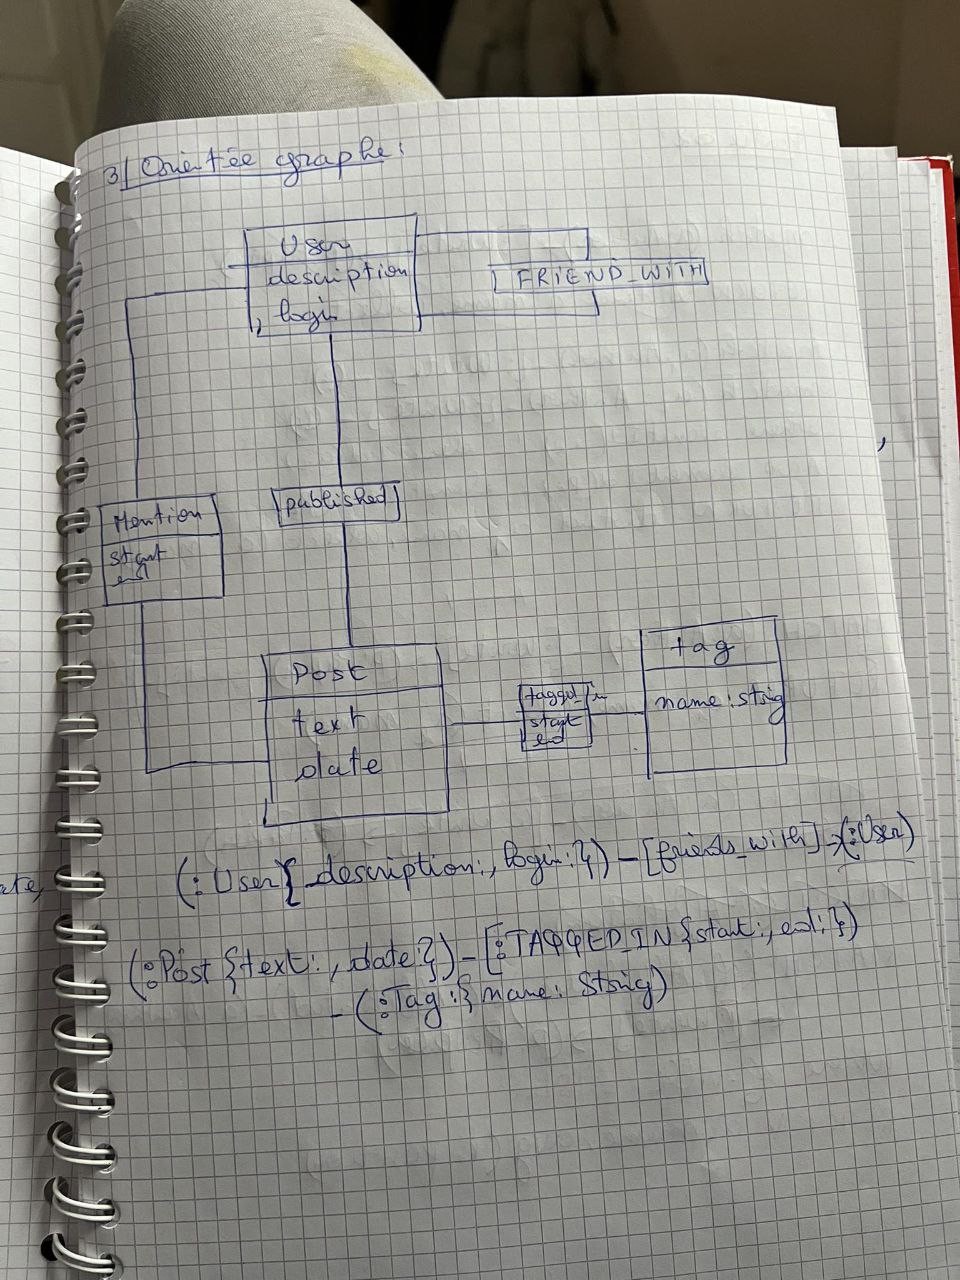 3/ Orientée graphe :
User
description
login
FRIEND_WITH
Mention
start
end
published
Post
text
date
tagged_in
start
ed
tag
name : string
ate,
(: User { description:, login: }) - [friends_with] -> (:User)
(:Post {text: , date: }) - [:TAGGED_IN {start: , end: })
- (:Tag :{ name: String)